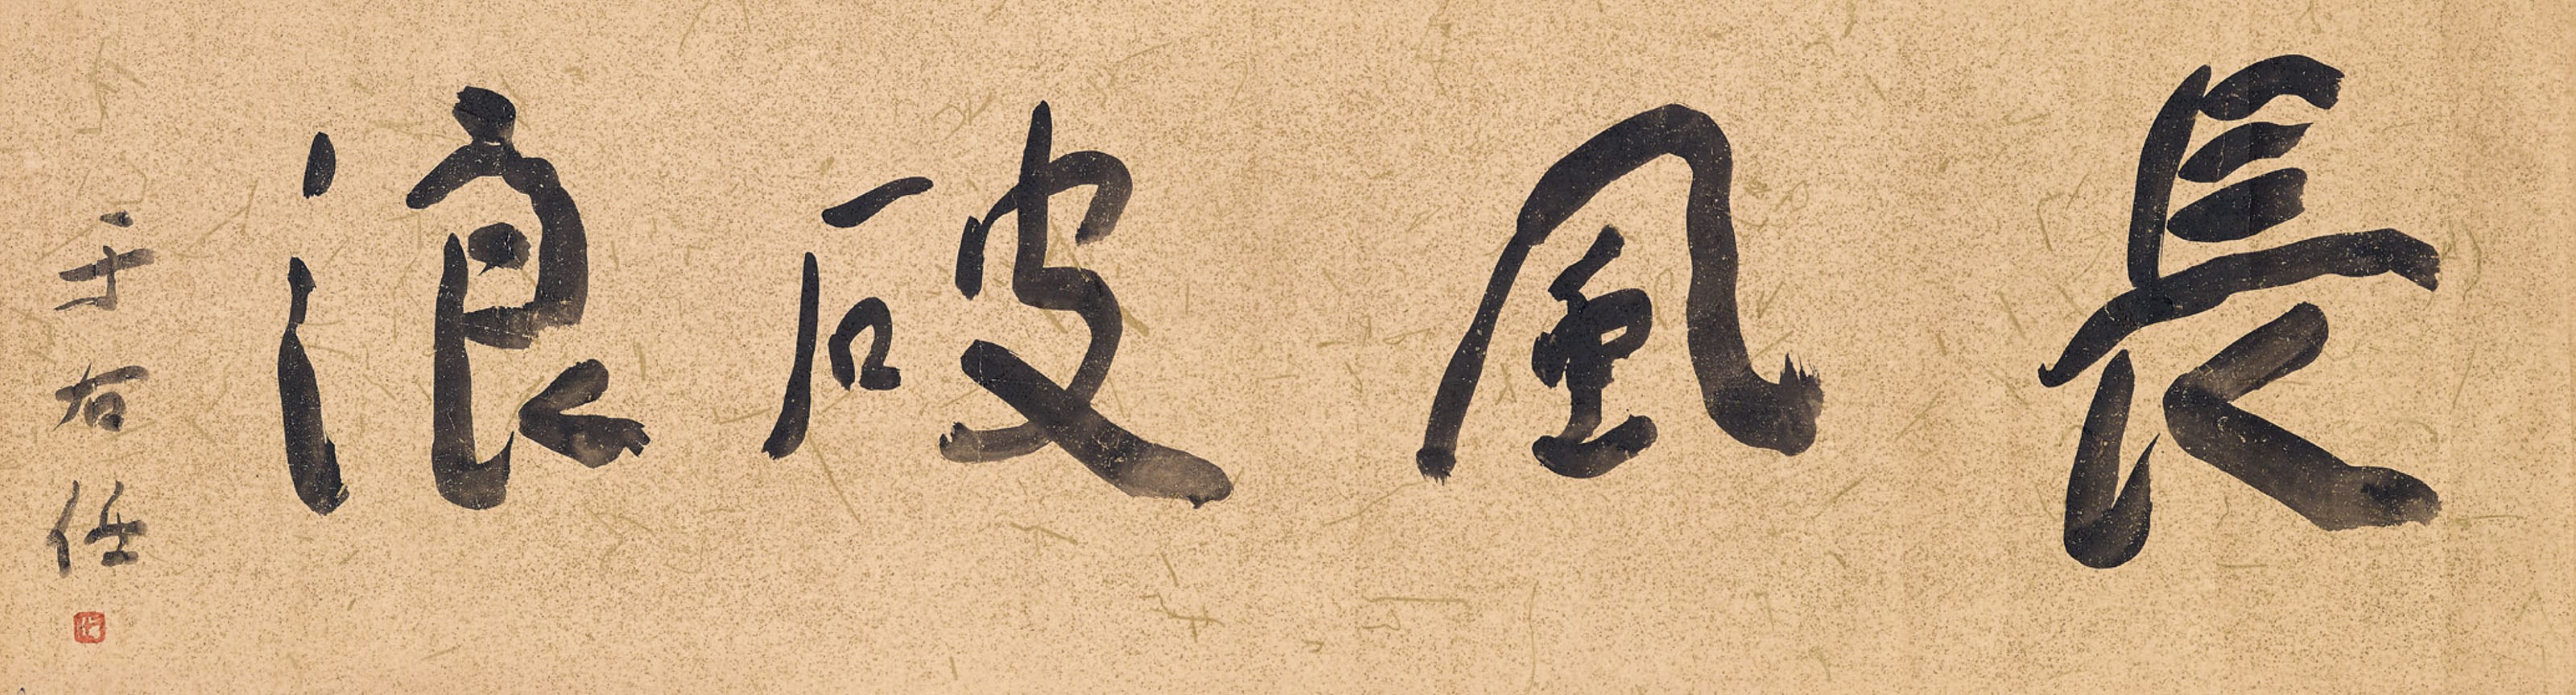 長風破浪
于右任